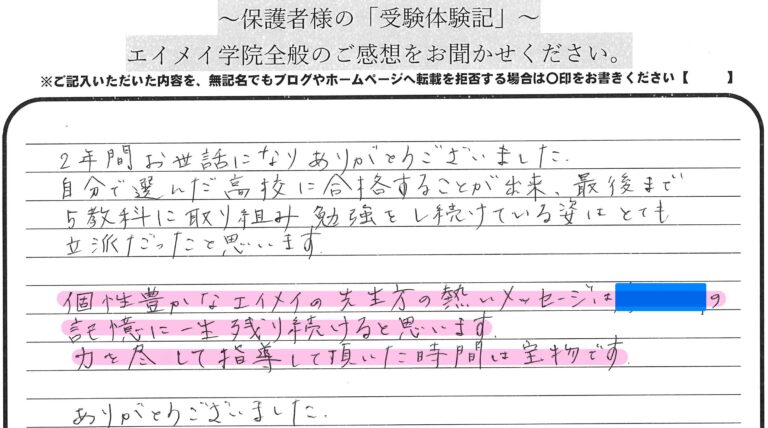 ～保護者様の「受験体験記」～
エイメイ学院全般のご感想をお聞かせください。
※ご記入いただいた内容を、無記名でもブログやホームページへ転載を拒否する場合は〇印をお書きください【　　】
2年間お世話になりありがとうございました.
自分で選んだ高校に合格することが出来、最後まで
5教科に取り組み勉強をし続けている姿はとても
立派だったと思います.
個性豊かなエイメイの先生方の熱いメッセージは の
記憶に一生残り続けると思います.
力を尽して指導して頂いた時間は宝物です.
ありがとうございました.